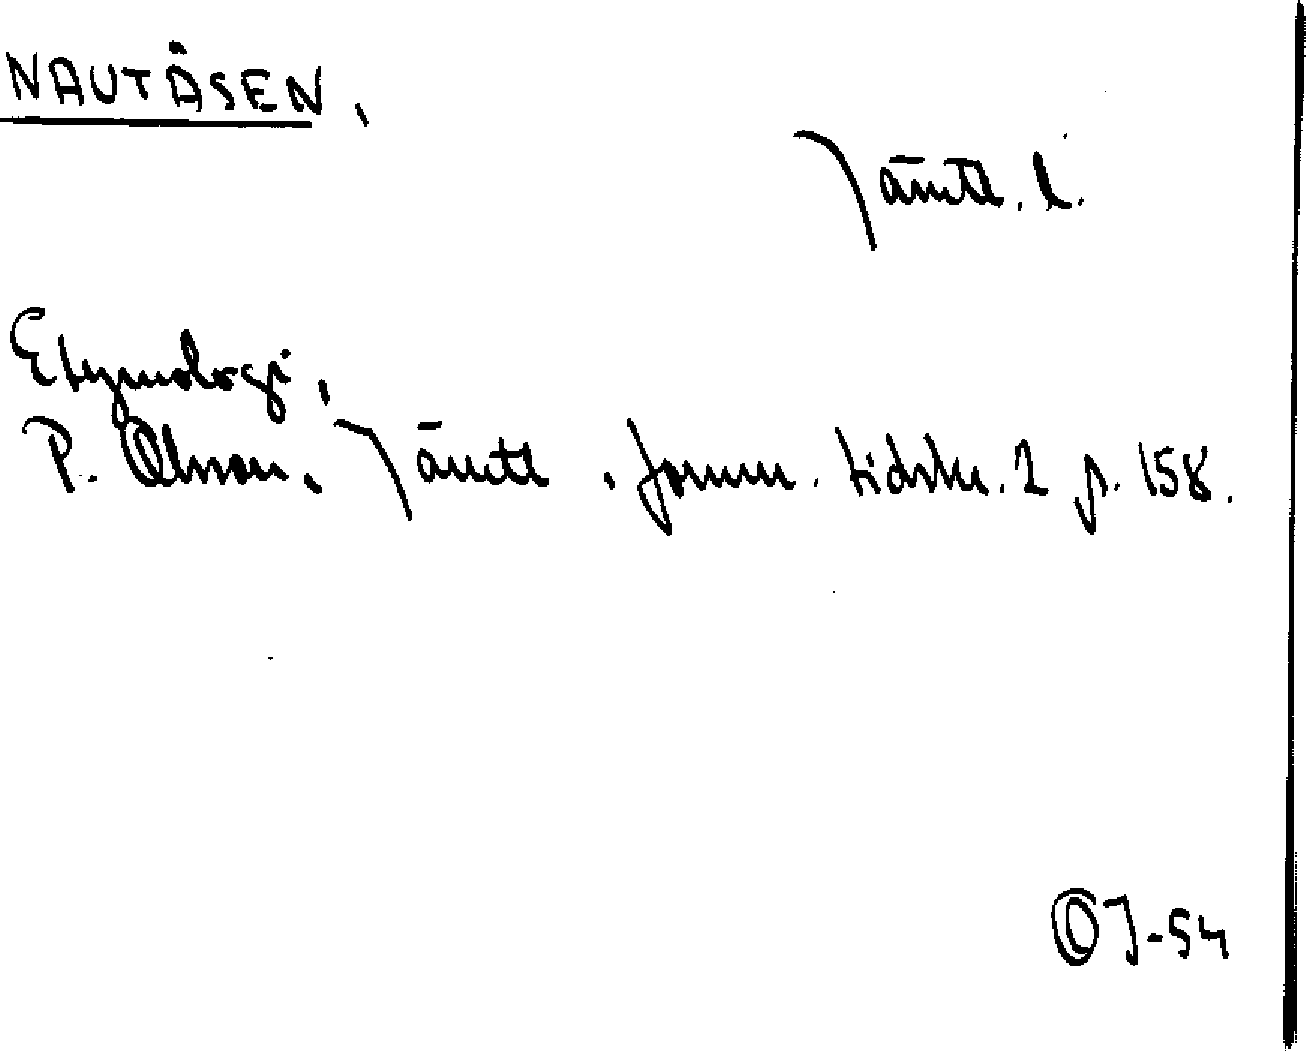 NAUTÅSEN,
Jämtl. l.
Etymologi,
P. Olsson, Jämtl. fornm. tidskr. 2 p. 158.
OJ-54